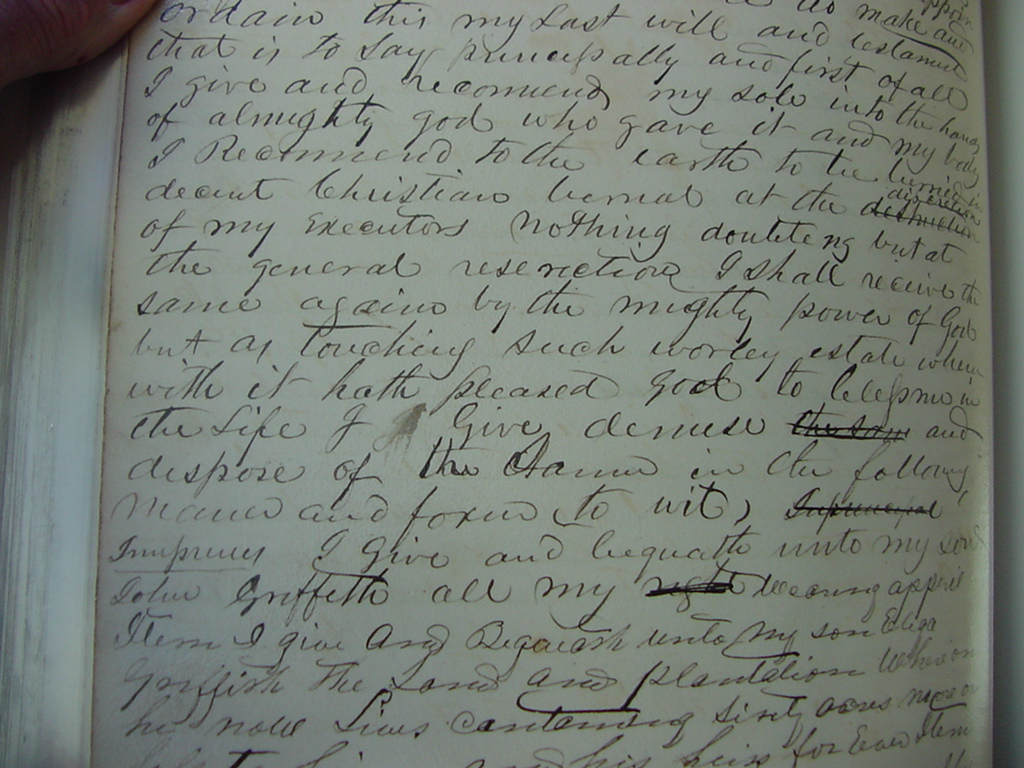 make and
ordain this my Last will and testament
that is to say principally and first of all
I give and Recomend my sole into the hang
of almighty god who gave it and my bod
I Recommend to the earth to be
decent Christian berual at the
of my Executors nothing doubteng but at
the general reserection I shall receive the
same again by the mighty power of God
but as touching such worley estate wher
with it hath pleased God to bless me in
the Life I Give demise and
dispose of the same in the follow
Maner and form to wit,
Impring I give and bequeath unto my son
John Griffith all my wearing
Item I give and Bequeath unto My son
Griffith the Land and plantation Whereon
he now Lives containing
and his heirs forever Item